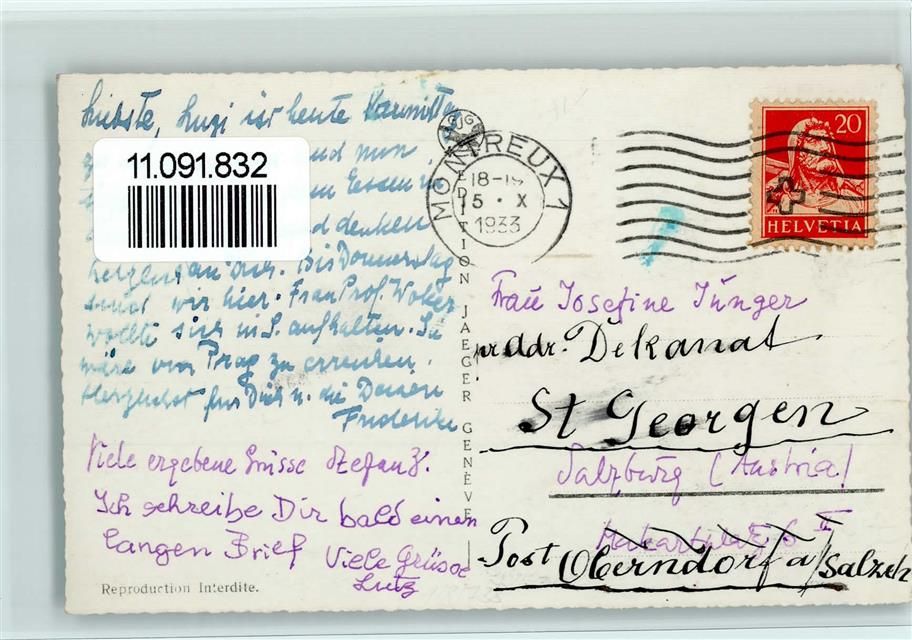 Liebste, Luzi ist heute
11.091.832
und nun
Essen
denken
an Dich. Bis Donnerstag
sind wir hier. Frau Prof.
wollte sich in S. aufhalten. Sie
wäre von Prag zu erreichen.
für Dich u. die Deinen
Friderike
Viele ergebene Grüsse Stefan Z.
Ich schreibe Dir bald einen
langen Brief Viele Grüsse
Lutz
Reproduction Interdite.
EDITION JAEGER GENÈVE
MONTREUX 1
18-19
5 · X
1933
20
HELVETIA
Frau Josefine Junger
pr. Adr. Dekanat
St Georgen
Salzburg (Austria)
Makartplatz 6 II
Post Oberndorf a/Salzch